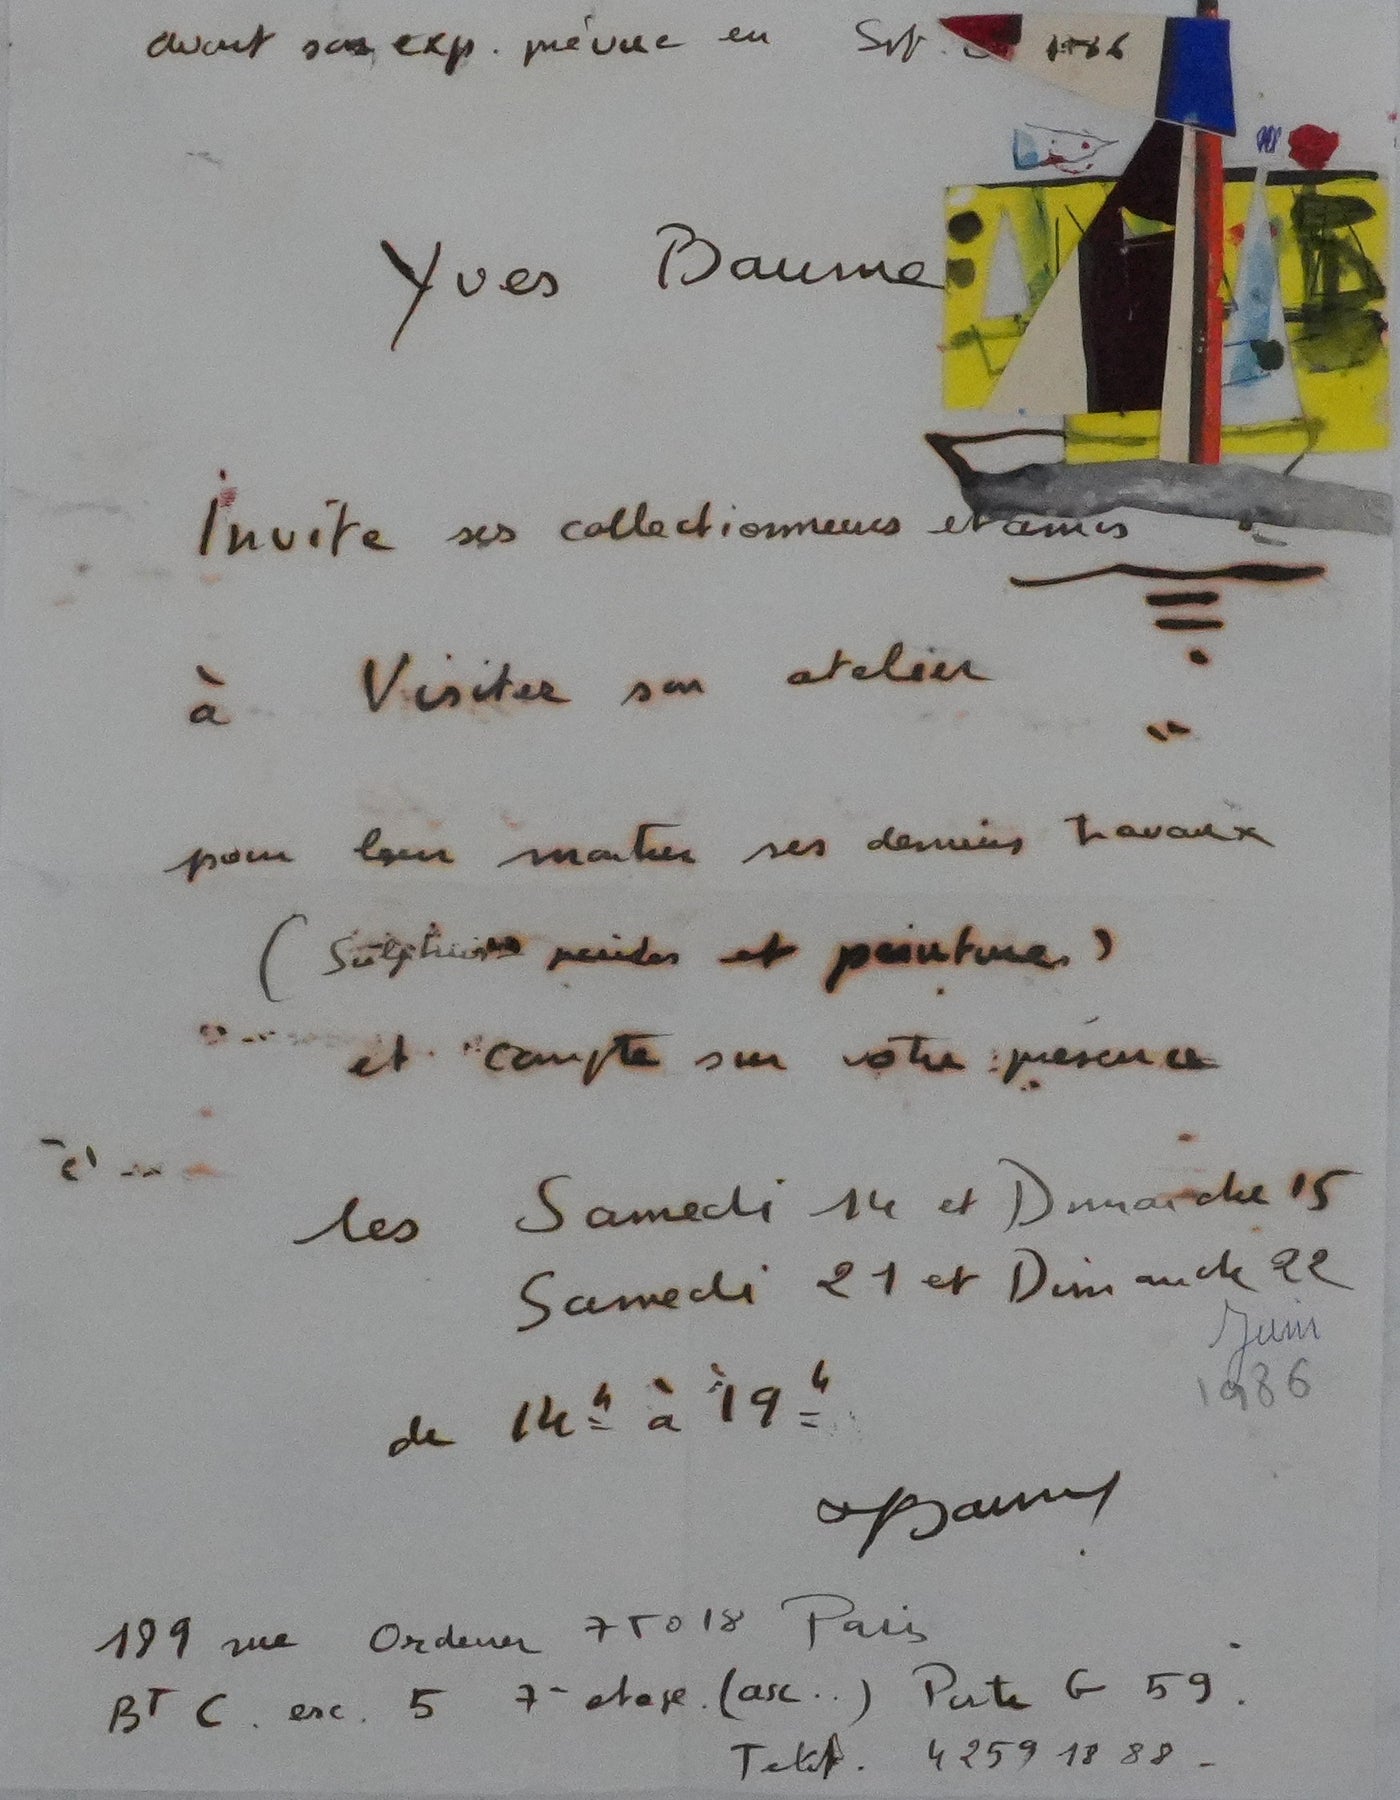 avant son exp. prévue en Sept. 1986
Yves Baume
Invite ses collectionneurs et amis
à Visiter son atelier
pour leur montrer ses derniers travaux
(Sculptures peintes et peintures)
et compte sur votre présence
les Samedi 14 et Dimanche 15
Samedi 21 et Dimanche 22
Juin
1986
de 14h à 19h
Baume
189 rue Ordener 75018 Paris
BT C. esc. 5 7e etage. (asc..) Porte G 59.
Telef. 42 59 18 88 -